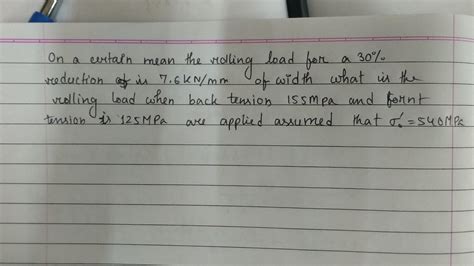 On a certain mean the rolling load for a 30%
reduction of is 7.6KN/mm of width what is the
rolling load when back tension 155Mpa and fornt
tension is 125MPa are applied assumed that σ₀' = 540MPa